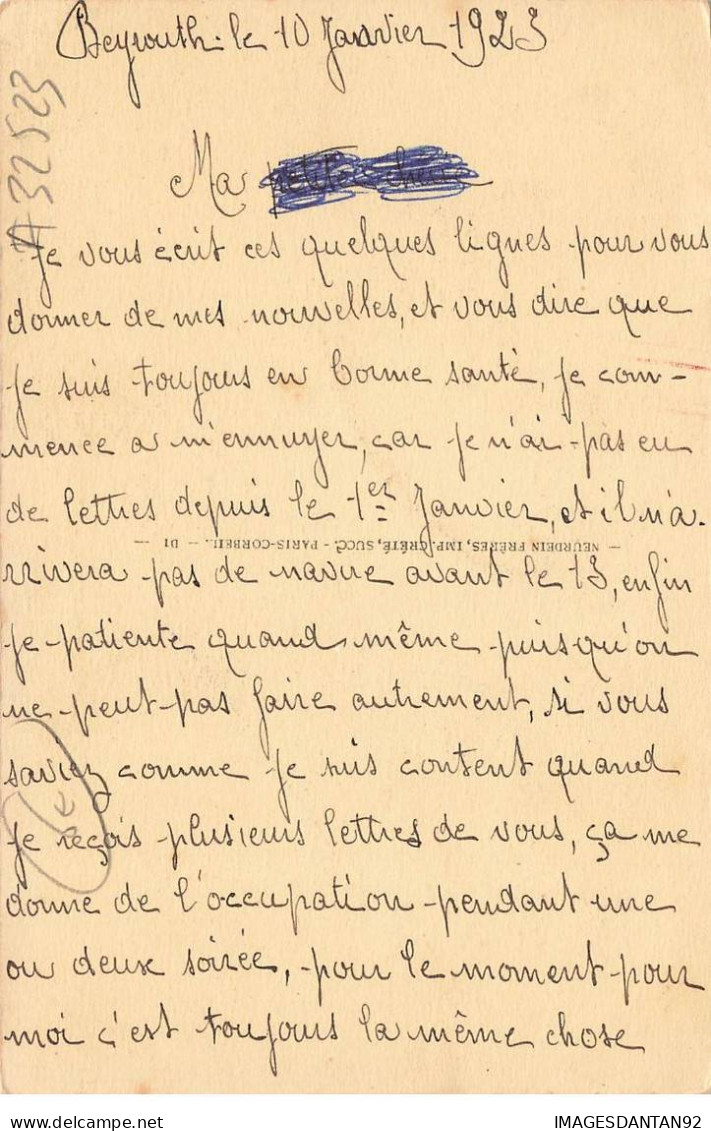 Beyrouth le 10 Janvier 1923
A 32523
Ma petite
Je vous écrit ces quelques lignes pour vous
donner de mes nouvelles, et vous dire que
je suis toujours en bonne santé, je com-
mence a m'ennuyer, car je n'ai pas eu
de lettres depuis le 1er Janvier, et il n'a-
— NEURDEIN FRÈRES, IMP. CRÉTÉ, SUCC. - PARIS-CORBEIL. — D1
rrivera pas de navire avant le 13, enfin
je patiente quand même puisqu'on
ne peut pas faire autrement, si vous
saviez comme je suis content quand
je reçois plusieurs lettres de vous, ça me
donne de l'occupation pendant une
ou deux soirée, pour le moment pour
moi c'est toujours la même chose
IMAGESDANTAN92